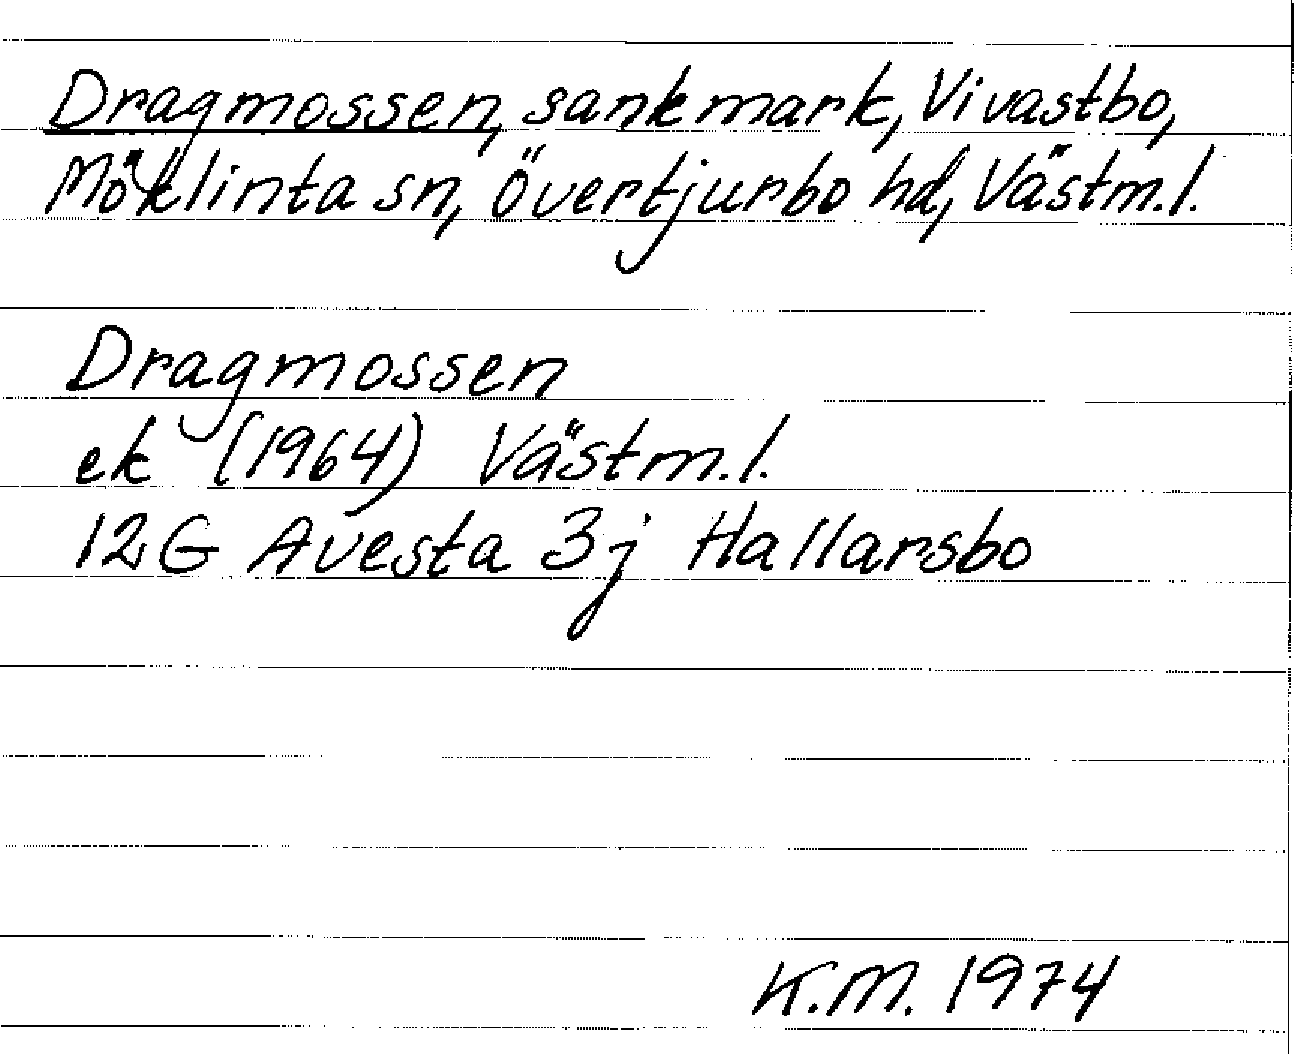 Dragmossen, sankmark, Vivastbo,
Möklinta sn, Övertjurbo hd, Västm.l.
Dragmossen
ek (1964) Västm.l.
12G Avesta 3j Hallarsbo
K.M. 1974